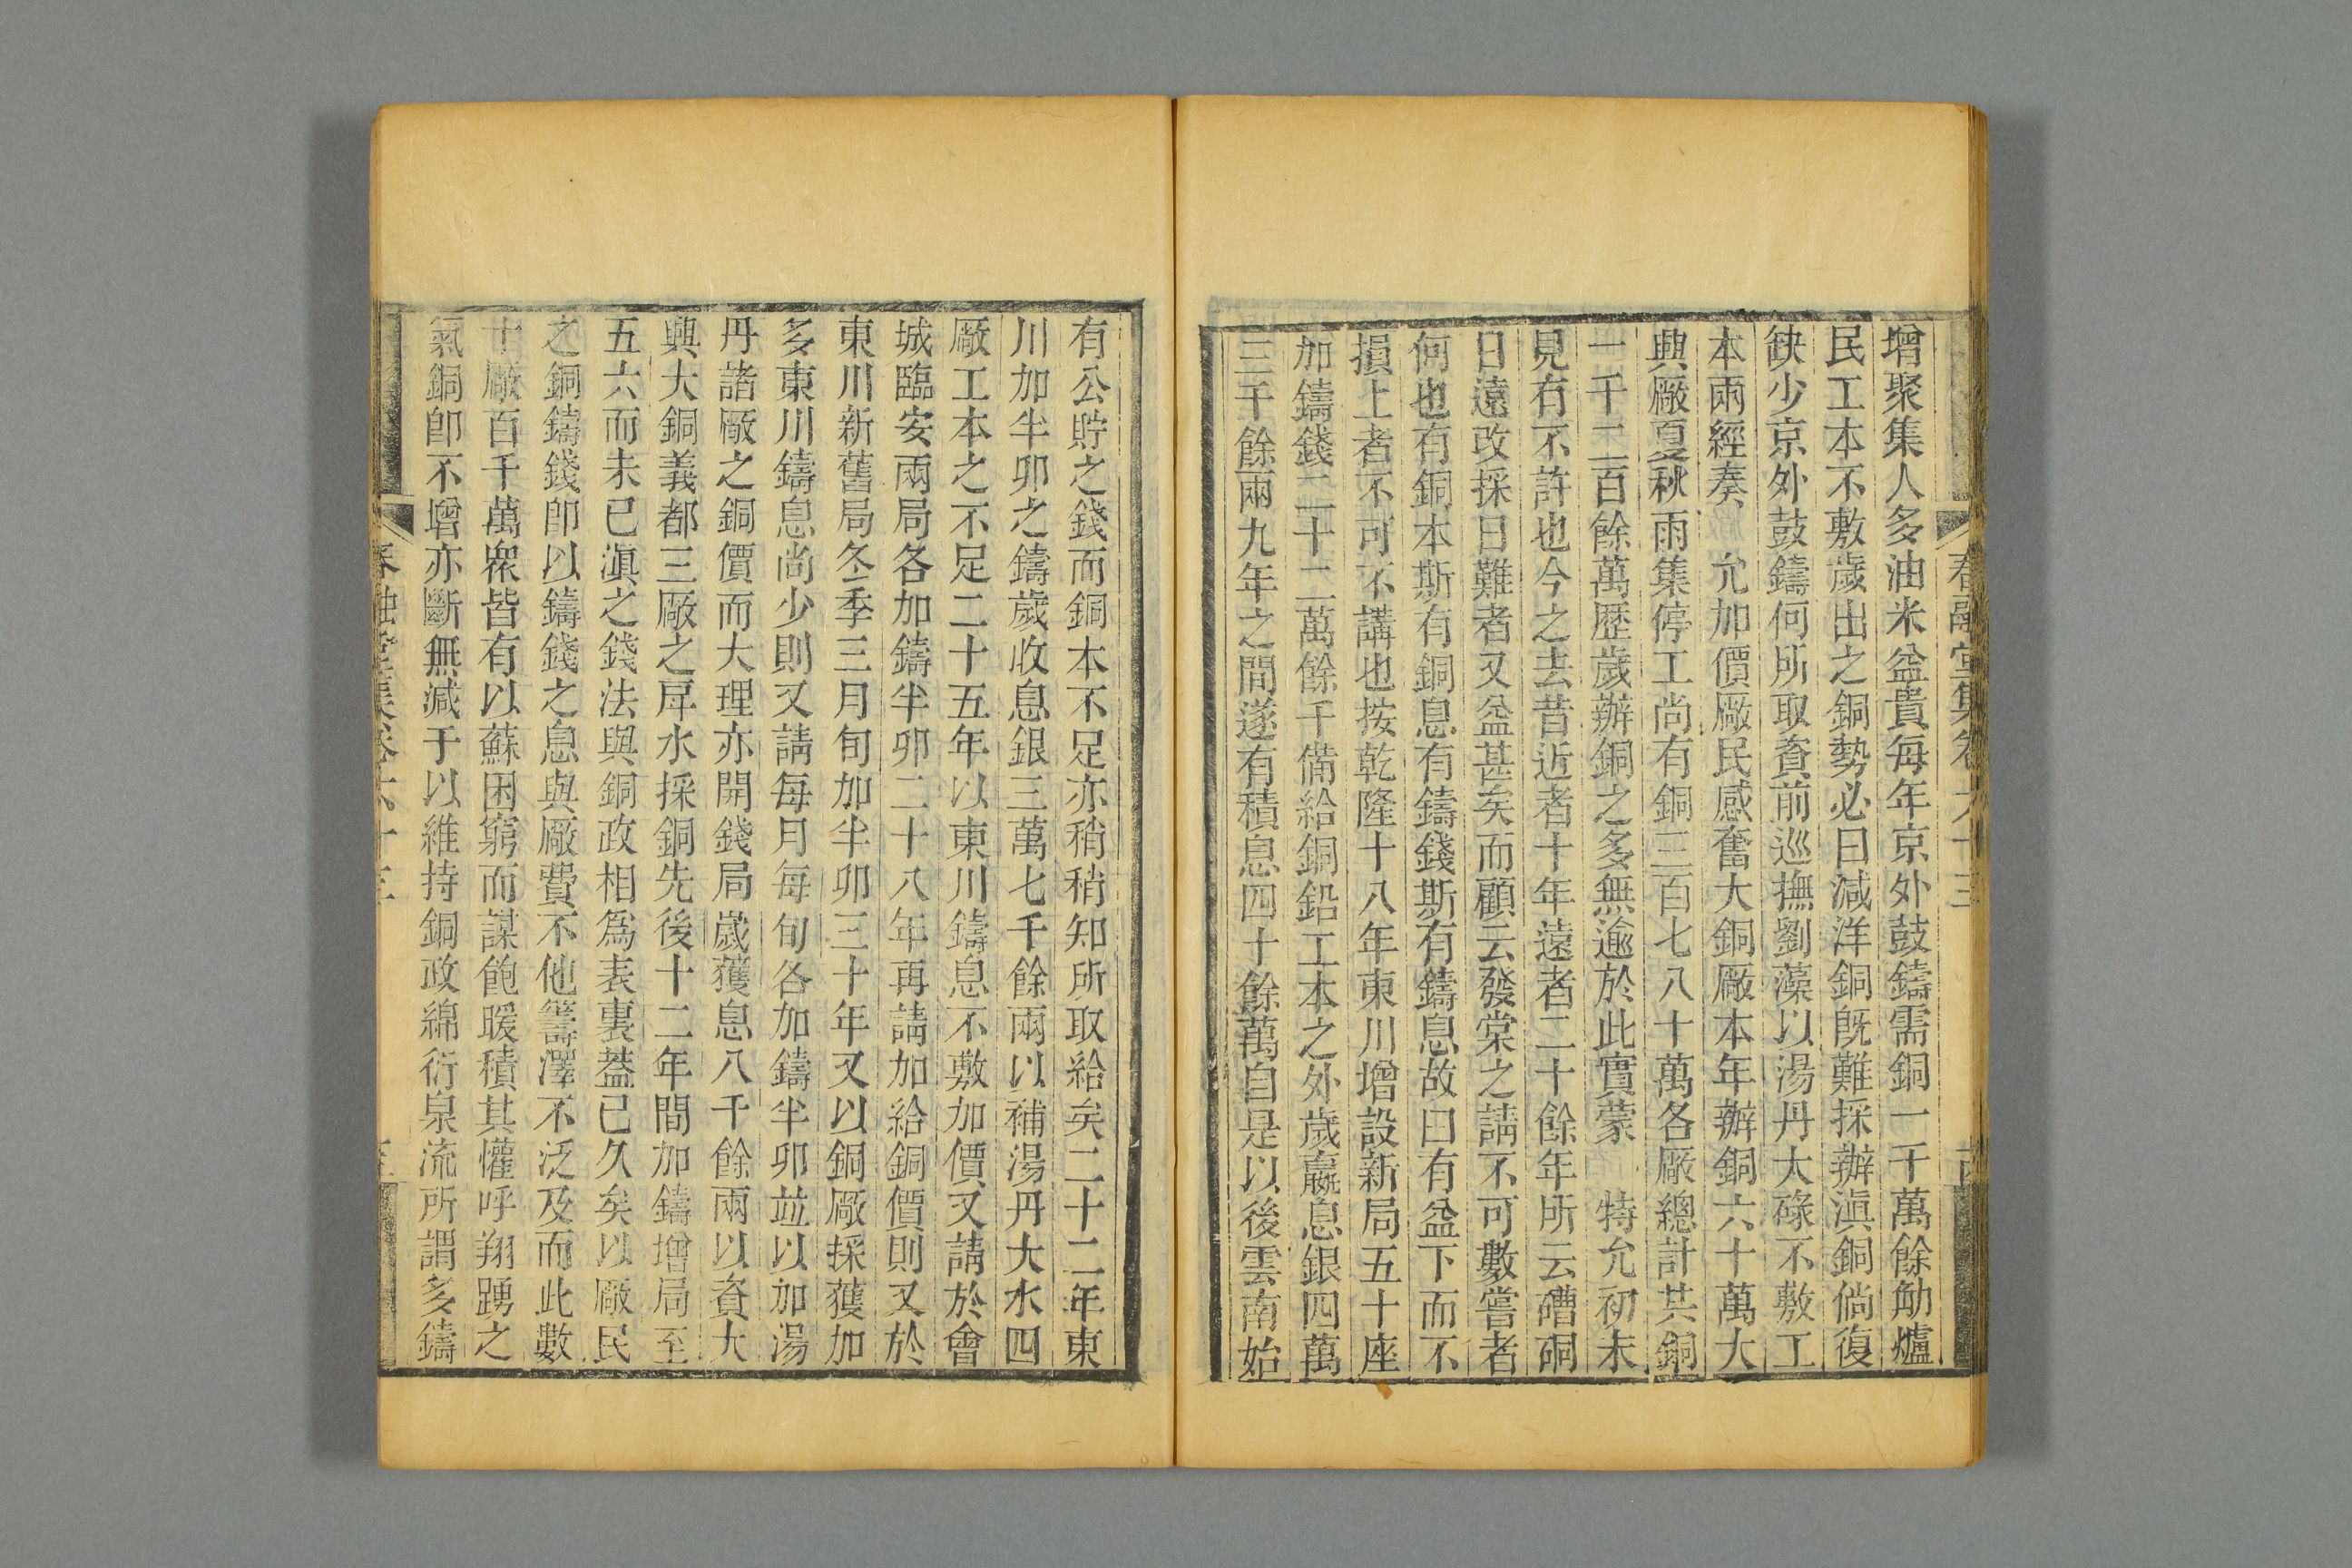 增聚集人多油米益貴每年京外鼓鑄需銅一千萬餘觔爐
民工本不敷歲出之銅勢必曰減洋銅旣難採辦滇銅倘復
缺少京外鼓鑄何所取資前巡撫劉藻以湯丹大碌不敷工
本兩經奏 允加價厰民感奮大銅厰本年辦銅六十萬大
興厰夏秋雨集停工尚有銅三百七八十萬各厰總計共銅
一千二百餘萬歷歲辦銅之多無逾於此實蒙 特允初未
見有不許也今之去昔近者十年遠者二十餘年所云礌硐
日遠改採日難者又益甚矣而顧云發棠之請不可數嘗者
何也有銅本斯有銅息有鑄錢斯有鑄息故曰有益下而不
損上者不可不講也按乾隆十八年東川增設新局五十座
加鑄錢二十二萬餘千備給銅鉛工本之外歲嬴息銀四萬
三千餘兩九年之間遂有積息四十餘萬自是以後雲南始
有公貯之錢而銅本不足亦稍稍知所取給矣二十二年東
川加半卯之鑄歲收息銀三萬七千餘兩以補湯丹大水四
厰工本之不足二十五年以東川鑄息不敷加價又請於會
城臨安兩局各加鑄半卯二十八年再請加給銅價則又於
東川新舊局冬季三月旬加半卯三十年又以銅厰採獲加
多東川鑄息尚少則又請每月每旬各加鑄半卯並以加湯
丹諸厰之銅價而大理亦開錢局歲獲息八千餘兩以資大
興大銅義都三厰之戽水採銅先後十二年間加鑄增局至
五六而未已滇之錢法與銅政相爲表裏蓋已久矣以厰民
之銅鑄錢卽以鑄錢之息與厰費不他籌澤不泛及而此數
十厰百千萬衆皆有以蘇困窮而謀飽暖積其懽呼翔踴之
氣銅卽不增亦斷無減于以維持銅政綿衍泉流所謂多鑄